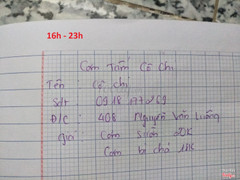 16h - 23h
Cơm Tấm Cô Chi
Tên Cô Chi
Sđt : 0918 177 269
Đ/C : 408 Nguyễn Văn Luông
giá : Cơm Sườn 20K
Cơm bì chả 18K